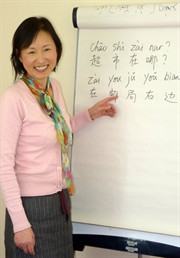 chāo shì zài nǎr ?
超 市 在 哪 ?
zài yóu jú yòu bian
在 邮 局 右 边